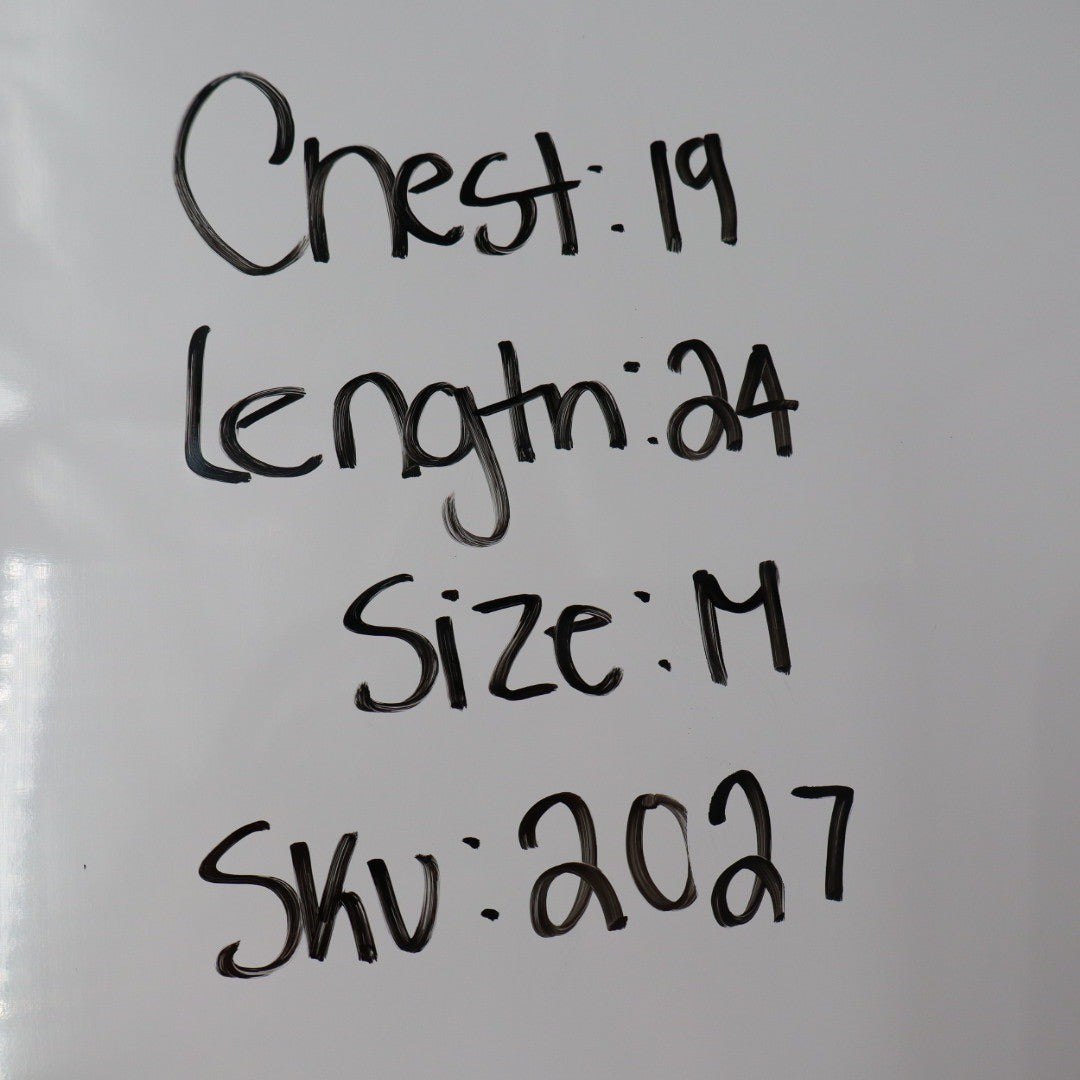 Chest: 19
Length: 24
Size: M
SKU: 2027